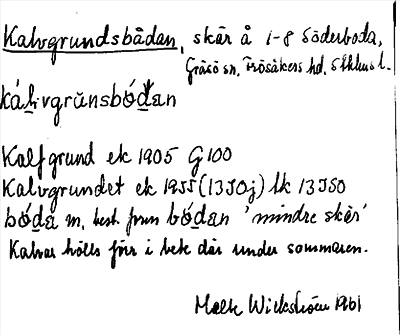 Kalvgrundsbådan, skär å 1-8 Söderboda,
Gräsö sn, Frösåkers hd, Sthlms l.
kál̲vgrŭnsbód̲an
Kalfgrund ek 1905 G100
Kalvgrundet ek 1955 (13J0j) lk 13J50
bóda m, best. form bódan 'mindre skär'
Kalvar hölls förr i bete där under sommaren.
Malte Wickström 1961